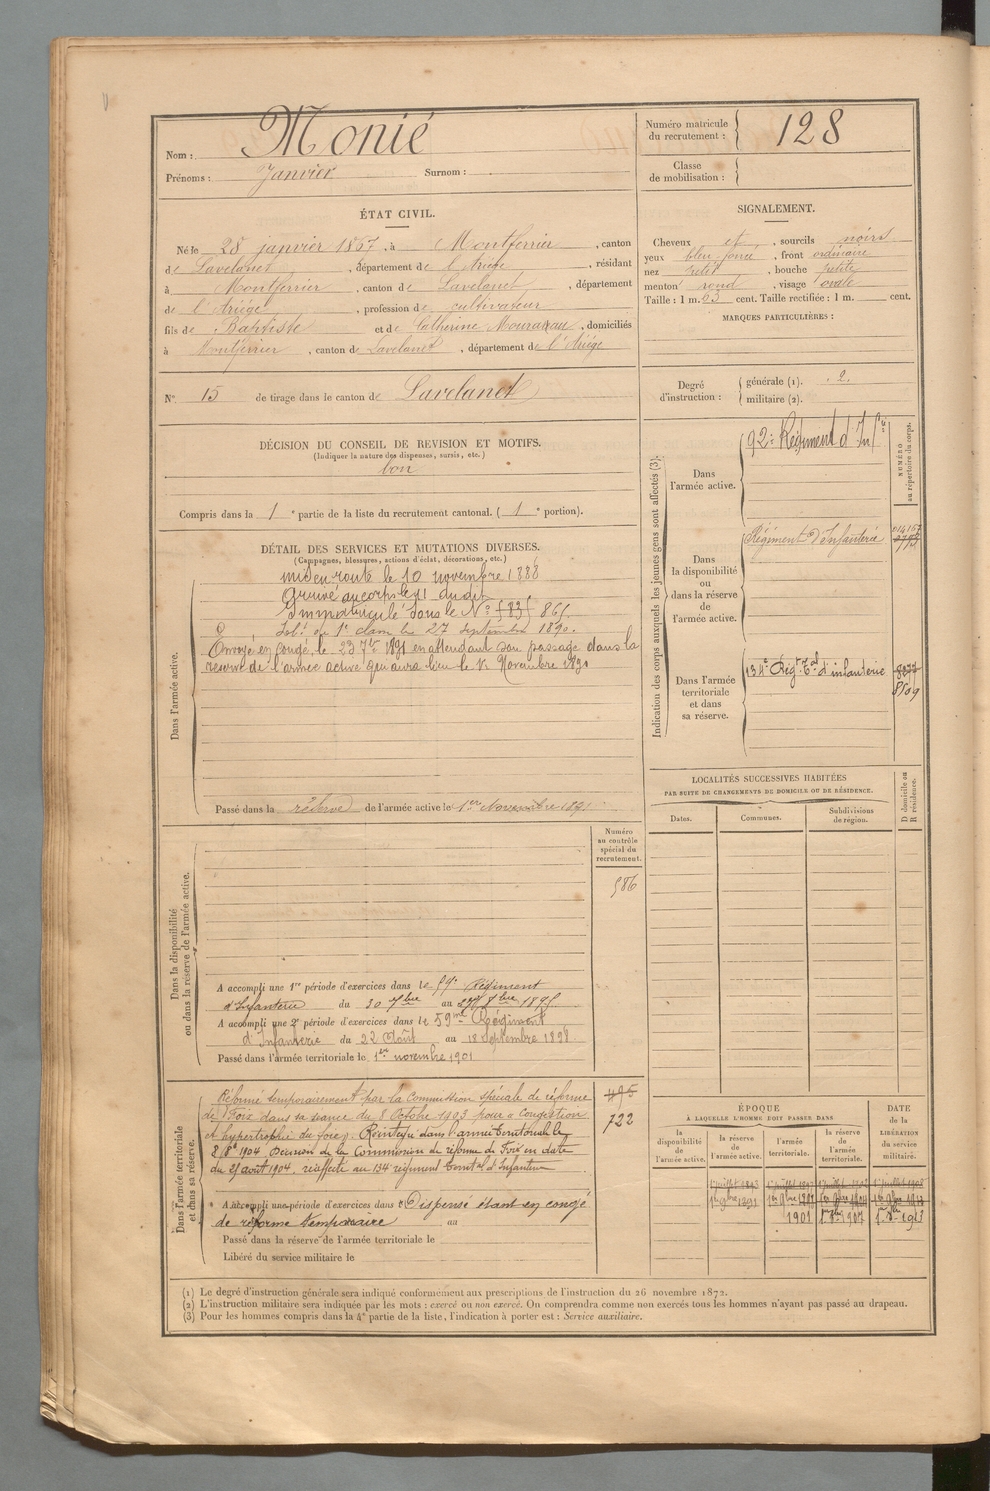 Nom : Monié
Prénoms : Janvier Surnom :
Numéro matricule du recrutement : 128
Classe de mobilisation :
ÉTAT CIVIL.
Né le 28 janvier 1867, à Montferrier, canton
de Lavelanet, département de l'Ariège, résidant
à Montferrier, canton de Lavelanet, département
de l'Ariège, profession de cultivateur
fils de Baptiste et de Catherine, domiciliés
à Montferrier, canton de Lavelanet, département de l'Ariège
N° 15 de tirage dans le canton de Lavelanet
SIGNALEMENT.
Cheveux et, sourcils noirs
yeux bleu, front ordinaire
nez petit, bouche petite
menton rond, visage ovale
Taille : 1 m. cent. Taille rectifiée : 1 m. cent.
MARQUES PARTICULIÈRES :
Degré d'instruction : générale (1). 2.
militaire (2).
DÉCISION DU CONSEIL DE REVISION ET MOTIFS.
(Indiquer la nature des dispenses, sursis, etc.)
bon
Compris dans la 1e partie de la liste du recrutement cantonal. (1e portion).
DÉTAIL DES SERVICES ET MUTATIONS DIVERSES.
(Campagnes, blessures, actions d'éclat, décorations, etc.)
Dans l'armée active.
mis en route le 10 novembre 1888
Arrivé au corps le 11 dudit
Immatriculé sous le N°
Sol. de 1e classe le 27 septembre 1890.
Envoyé en congé, le 23 7bre 1891 en attendant son passage dans la
réserve de l'armée active qui aura lieu le 1er Novembre 1891
Passé dans la réserve de l'armée active le 1er Novembre 1891
Indication des corps auxquels les jeunes gens sont affectés (3).
NUMÉRO au répertoire du corps.
Dans l'armée active.
Régiment d'Infie
Dans la disponibilité ou dans la réserve de l'armée active.
Régiment d'Infanterie
Dans l'armée territoriale et dans sa réserve.
134e Régt Tal d'infanterie
LOCALITÉS SUCCESSIVES HABITÉES
PAR SUITE DE CHANGEMENTS DE DOMICILE OU DE RÉSIDENCE.
Dates. Communes. Subdivisions de région. D domicile ou R résidence.
Numéro au contrôle spécial du recrutement.
586
Dans la disponibilité ou dans la réserve de l'armée active.
A accompli une 1re période d'exercices dans le 59e Régiment
d'Infanterie du 30 7bre au 1895.
A accompli une 2e période d'exercices dans le 59me Régiment
d'Infanterie du 22 Août au 18 Septembre 1898
Passé dans l'armée territoriale le 1er novembre 1901
Dans l'armée territoriale et dans sa réserve.
495
722
Réformé temporairement par la Commission spéciale de réforme
de Foix dans sa séance du 8 Octobre 1903 pour « Congestion
et hypertrophie du foie ». Réintégré dans l'armée territoriale le
1904 Décision de la Commission de réforme de Foix en date
du août 1904, réaffecté au 134 régiment Territal d'Infanterie
A accompli une période d'exercices dans Dispensé étant en congé
de réforme temporaire au
Passé dans la réserve de l'armée territoriale le
Libéré du service militaire le
ÉPOQUE
À LAQUELLE L'HOMME DOIT PASSER DANS
la disponibilité de l'armée active. la réserve de l'armée active. l'armée territoriale. la réserve de l'armée territoriale.
DATE de la LIBÉRATION du service militaire.
1er 9bre 1891
1901 1907 1913
(1) Le degré d'instruction générale sera indiqué conformément aux prescriptions de l'instruction du 26 novembre 1872.
(2) L'instruction militaire sera indiquée par les mots : exercé ou non exercé. On comprendra comme non exercés tous les hommes n'ayant pas passé au drapeau.
(3) Pour les hommes compris dans la 4e partie de la liste, l'indication à porter est : Service auxiliaire.